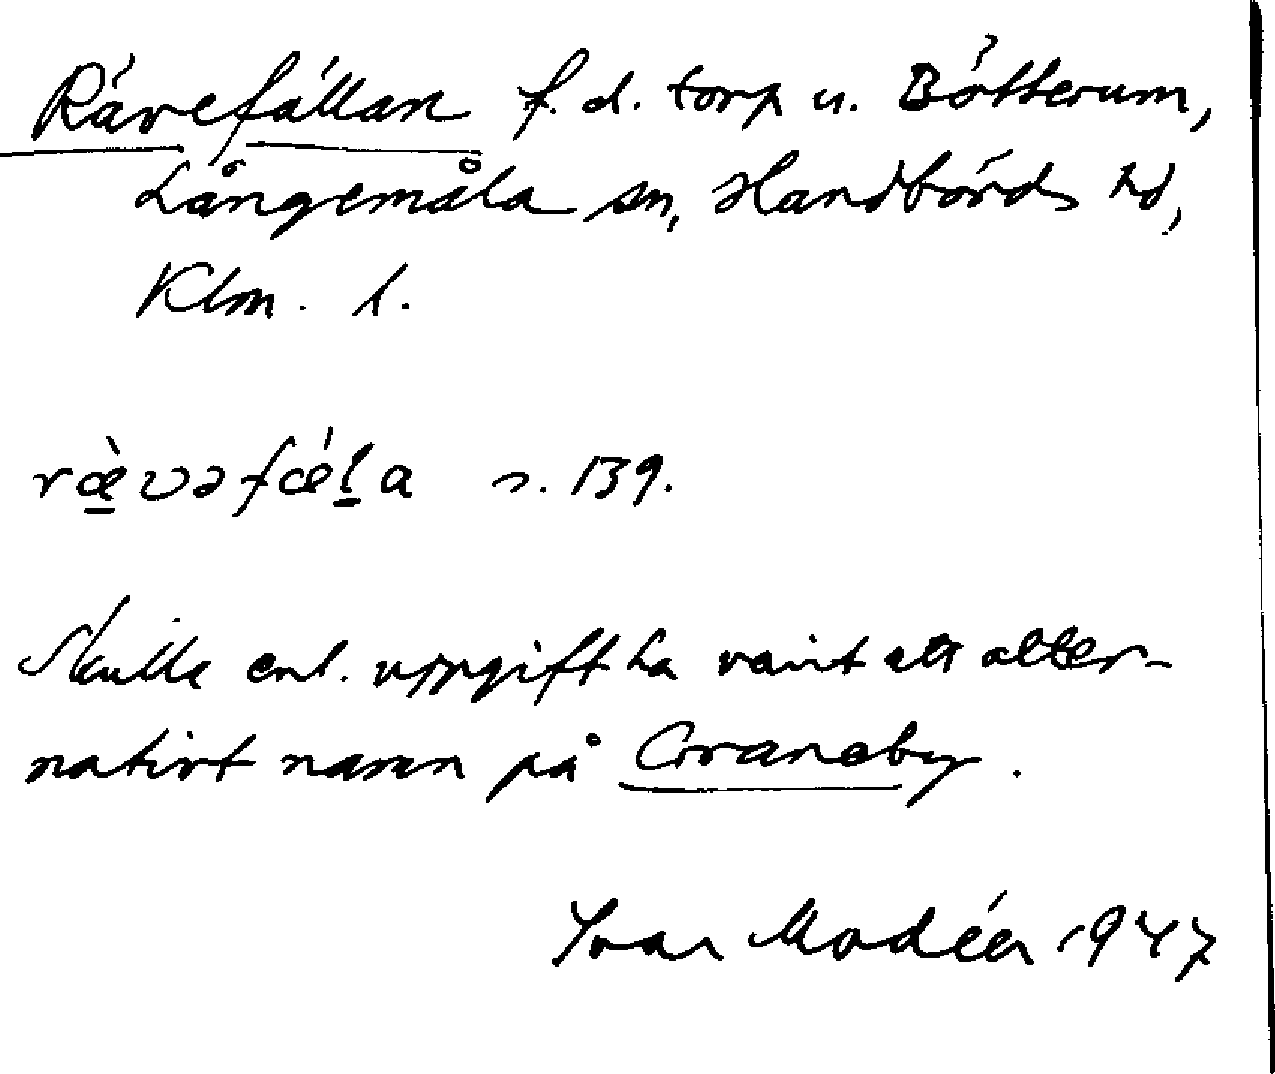 Rävefällan f. d. torp u. Bötterum,
Långemåla sn, Handbörds hd,
Klm. l.
ræ̀vəfǽl̠a s. 139.
Skulle enl. uppgift ha varit ett alter-
nativt namn på Graneby.
Ivar Modéer 1947